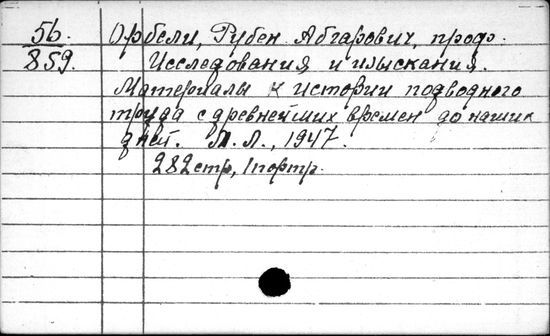 56. Орбели, Рубен Абгарович, проф.
859. Исследования и изыскания.
Материалы к истории подводного
труда с древнейших времен до наших
дней. М. Л., 1947.
282 стр, 1 портр.